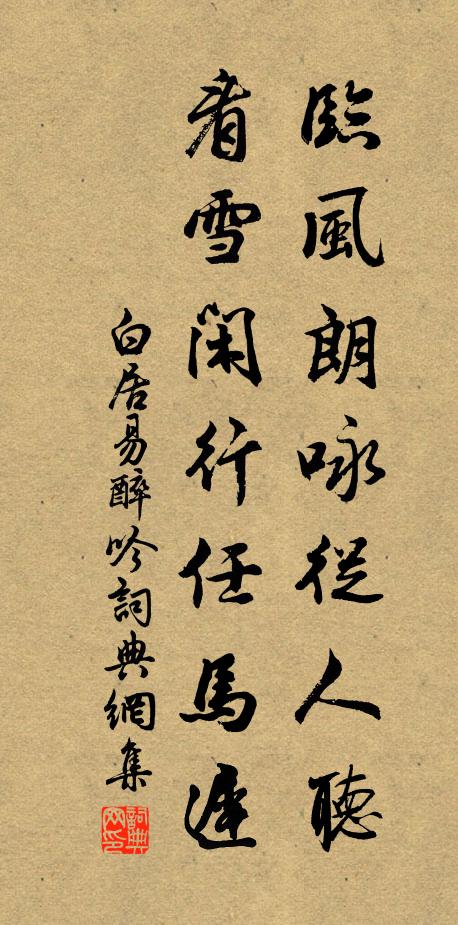 臨風朗咏從人聽
看雪閑行任馬遲
白居易醉吟詞典網集
詞典網印